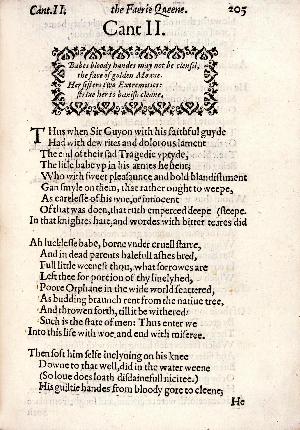 Cant. II. the Faerie Queene. 205
Cant II.
Babes bloody handes may not be clensd,
the face of golden Meane.
Her sisters two Extremities:
striue her to banish cleane.
THus when Sir Guyon with his faithful guyde
Had with dew rites and dolorous lament
The end of their sad Tragedie vptyde,
The litle babe vp in his armes he hent;
Who with sweet pleasaunce and bold blandishment
Gan smyle on them, that rather ought to weepe,
As carelesse of his woe, or innocent
Of that was doen, that ruth emperced deepe (steepe.
In that knightes hart, and wordes with bitter teares did
Ah lucklesse babe, borne vnder cruell starre,
And in dead parents balefull ashes bred,
Full litle weenest thou, what sorrowes are
Left thee for portion of thy liuelyhed,
Poore Orphane in the wide world scattered,
As budding braunch rent from the natiue tree,
And throwen forth, till it be withered:
Such is the state of men: Thus enter we
Into this life with woe, and end with miseree.
Then soft him selfe inclyning on his knee
Downe to that well, did in the water weene
(So loue does loath disdainefull nicitee.)
His guiltie handes from bloody gore to cleene,
He